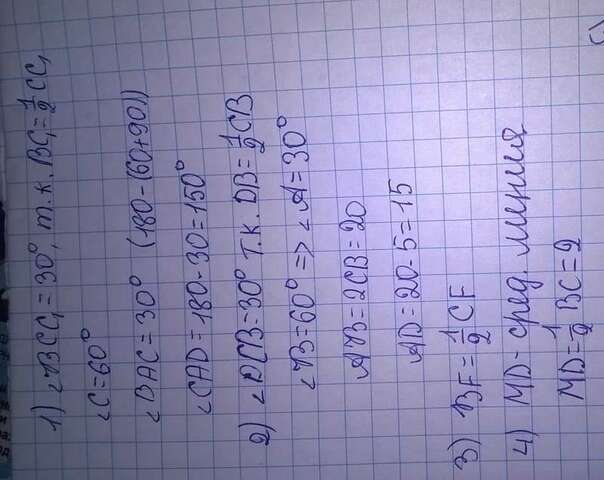 1) ∠BCC₁ = 30°, т.к. BC₁ = 1/2 CC₁
∠C = 60°
∠BAC = 30° (180-(60+90))
∠CAD = 180-30 = 150°
2) ∠DCB = 30° т.к. DB = 1/2 CB
∠B = 60° => ∠A = 30°
AB = 2CB = 20
AD = 20-5 = 15
3) BF = 1/2 CF
4) MD - сред. линия
MD = 1/2 BC = 2